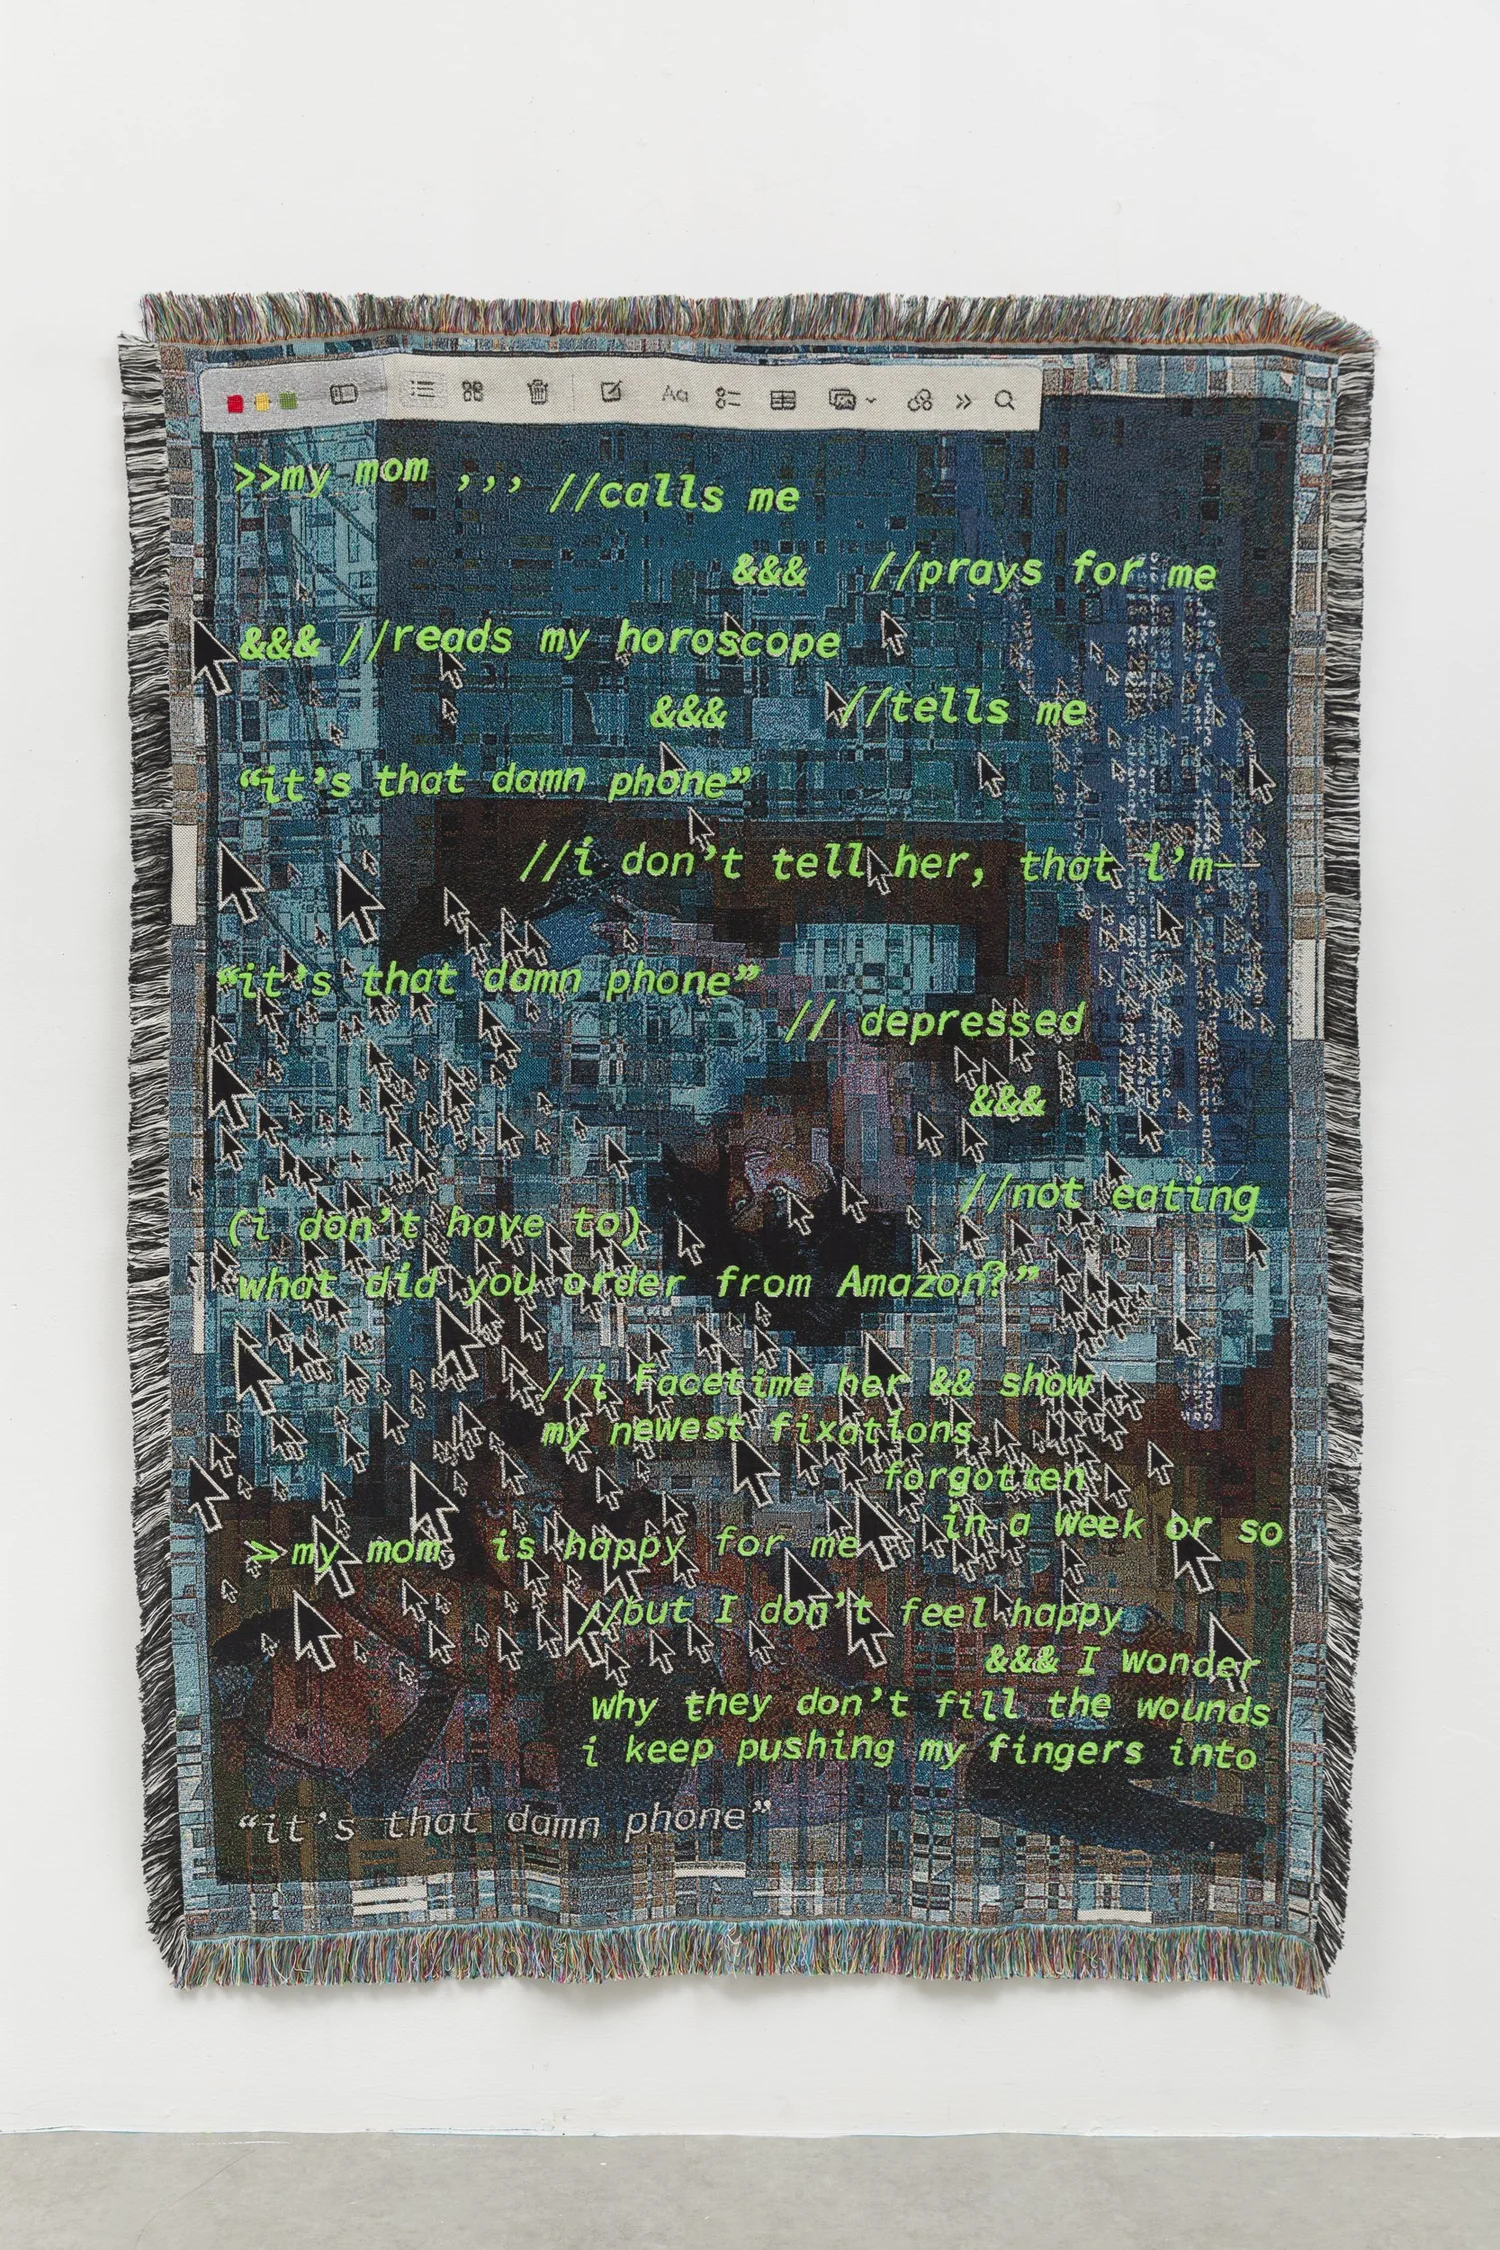 Aa
>>my mom ,,, //calls me
&&& //prays for me
&&& //reads my horoscope
&&& //tells me
“it’s that damn phone”
//i don’t tell her, that i’m—
“it’s that damn phone”
// depressed
&&&
//not eating
(i don’t have to)
what did you order from Amazon?”
//i Facetime her && show
my newest fixations
forgotten
in a week or so
>my mom is happy for me
//but I don’t feel happy
&&& I wonder
why they don’t fill the wounds
i keep pushing my fingers into
“it’s that damn phone”